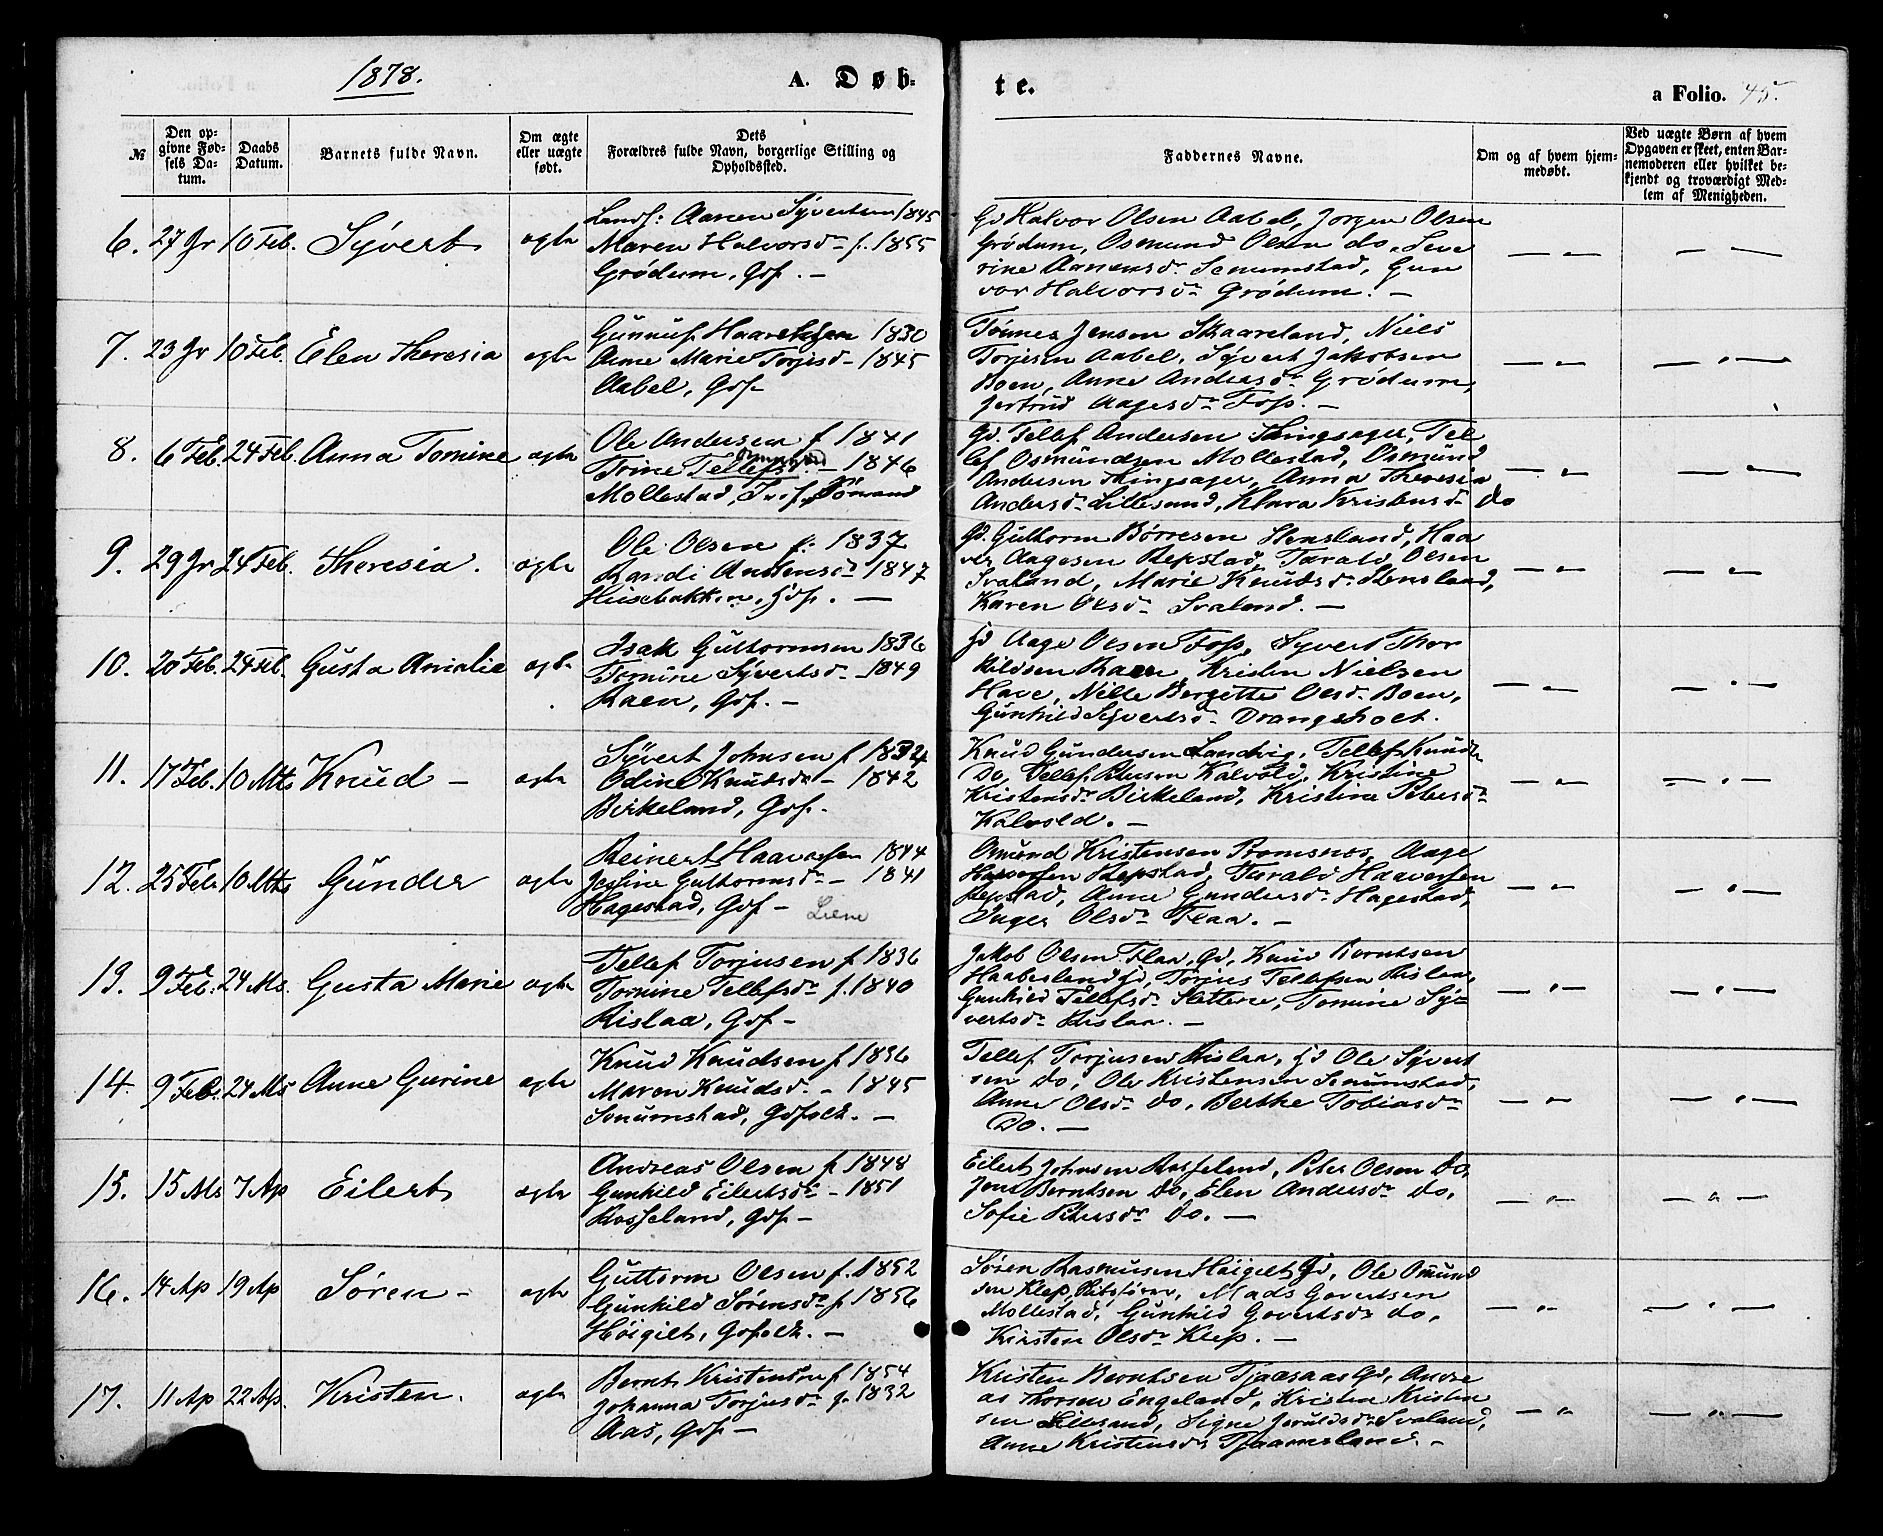 1878.
A. Døb-
te.
a Folio. 45.
№
Den op-
givne Fød-
sels Da-
tum.
Daabs
Datum.
Barnets fulde Navn.
Om ægte
eller uægte
født.
Dets
Forældres fulde Navn, borgerlige Stilling og
Opholdssted.
Faddernes Navne.
Om og af hvem hjem-
medøbt.
Ved uægte Børn af hvem
Opgaven er skeet, enten Bar-
nemoderen eller hvilket be-
kjendt og troværdigt Med-
lem af Menigheden.
6. 27 Jr 10 Feb. Syvert ægte
Aanen Syvertsen 1845
Maren Halvorsdr f. 1855
Grødum, Gdf. —
Gd Halvor Olsen Aabel, Jorgen Olsen
Grødum, Osmund Olsen do, Seve
rine Aanensdr Senumstad, Gun
vor Halvorsdr Grødum. —
7. 23 Jr 10 Feb. Elen Theresia ægte
Gunnuf Haavorsen 1830
Anne Marie Torjusd— 1845
Aabel, Gdf
Tønnes Jensen Skaareland, Niels
Torjusen Aabel, Syvert Jakobsen
Boen, Anne Andersdr Grødum,
Jertrud Aagesdr Foss. —
8. 6 Feb. 24 Feb. Anna Tomine ægte
Ole Andersen f 1841
Trine Tellefsd — 1846
Mollestad,
Gd. Tellef Andersen Thingsager, Tel
lef Osmundsen Mollestad, Osmund
Andersen Thingsager, Anna Theresia
Andersdr Lillesand, Klara Kristensdr Do
9. 29 Jr 24 Feb. Theresia. ægte
Ole Olsen f: 1837
Randi Antensdr 1847
Husebakken, Gdf. —
Gd. Guttorm Børresen Hensland, Haa
ver Aagesen Repstad, Tarald Olsen
Svaland, Marie Knudsdr Stensland,
Karen Olsdr Svaland. —
10. 20 Feb. 24 Feb. Gusta Amalie ægte
Isak Guttormsen 1836
Tomine Syvertsd — 1849
Raen, Gdf. —
Gd Aage Olsen Foss, Syvert Thor
kildsen Raen, Kristen Nielsen
Have, Nille Bergitte Olsdr Boen,
Gunhild Syvertsdr Drangsholt.
11. 17 Feb. 10 Mts Knud — ægte
Syvert Johnsen f 1834
Odine Knudsdr — 1842
Birkeland, Gdf.
Knud Gundersen Landvig, Tellef Knuds
Do, Tellef Petersen Kalvold, Kristine
Kristensdr Birkeland, Kristine Petersdr
Kalvold. —
12. 25 Feb 10 Mts Gunder ægte
Reinert Haaversen 1844
Jessine Guttormsdr — 1841
Hagestad, Gdf — Liene
Omund Kristensen Romsnes, Aage
Haaversen Repstad, Tarald Haaversen
Repstad, Anne Gundersdr Hagestad,
Inger Olsdr Flaa. —
13. 9 Feb. 24 Ms. Gusta Marie ægte
Tellef Torjusen f 1836
Tomine Tellefsdr f. 1840
Rislaa, Gdf —
Jakob Olsen Flaa, Gd, Knud Berntsen
Haabesland Gd, Torjus Tellefsen Rislaa,
Gunhild Tellefsdr Slettene, Tomine Sy-
vertsdr Rislaa. —
14. 9 Feb. 24 Ms Anne Gurine ægte
Knud Knudsen f 1836
Maren Knudsd — 1845
Senumstad, Gdfolk. —
Tellef Torjusen Rislaa, Gd Ole Syvert
sen do, Ole Kristensen Senumstad,
Anne Olsdr do, Berthe Tobiasdr
Do. —
15. 15 Ms 7 Ap Eilert ægte
Andreas Olsen f 1848
Gunhild Eilertsdr — 1851
Rosseland, Gdf —
Eilert Johnsen Rosseland, Peter Olsen Do,
Jens Berntsen Do, Elen Andersdr Do,
Sofie Petersdr Do. —
16. 14 Ap 19 Ap Søren — ægte
Guttorm Olsen f. 1852
Gunhild Sørensdr f 1856
Høigilt, Gdfolk. —
Søren Rasmusen Høigilt Gd, Ole Omund
sen Klep, Mads Govertsen
Mollestad, Gunhild Govertsdr do,
Kirsten Olsdr Klep. —
17. 11 Ap 22 Ap. Kristen. ægte
Bernt Kristensen f 1854
Johanna Torjusdr f. 1832
Aas, Gdf —
Kristen Berntsen Tjaaraas Gd, Andre
as Thorsen Engeland, Kristen Kristen
sen Lillesand, Signe Jeruldsdr Svaland,
Anne Kristensdr Tjaamsland. —